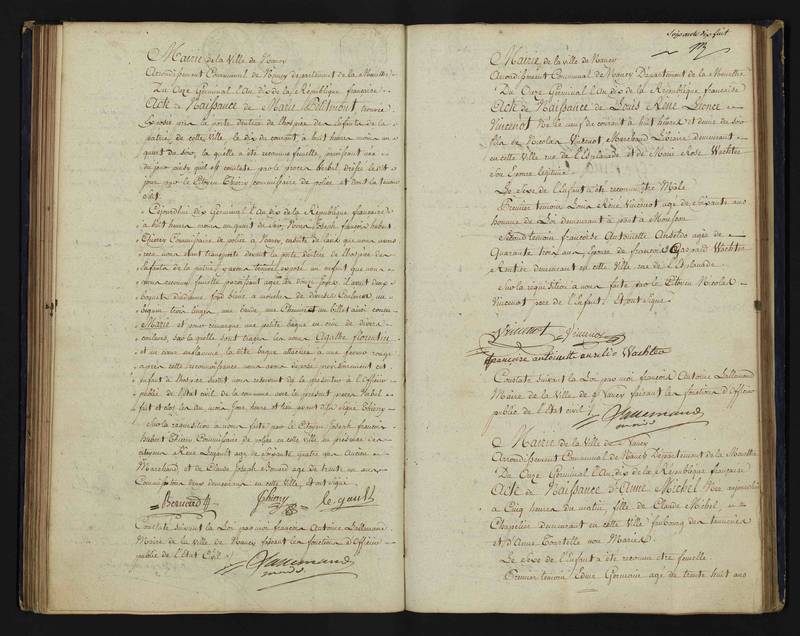 Mairie de la Ville de Nancy
Arrondissement Communal de Nancy département de la Meurthe
Du Onze Germinal l'An dix de la République française
Acte de Naissance de Marie Bellmont trouvée
exposée par la porte d'entrée de l'hospice des Enfants de la
patrie de cette ville le dix du courant, à huit heures moins un
quart du soir, laquelle a été reconnue femelle, paraissant née
du jour
par le Citoyen Thiery commissaire de police et dont la teneur
suit.
Cejourdhui dix Germinal l'An dix de la République française
à huit heures moins un quart du soir, Nous Joseph françois hubert
Thiery Commissaire de police à Nancy, ensuite de l'avis que nous avons
reçu nous étant transporté devant la porte d'entrée de l'hospice des
Enfants de la patrie y avons trouvé exposé un enfant que nous
avons reconnu femelle paraissant âgée de
fond blanc à mouches de diverses couleurs un
béguin, trois langes, une bande, une Chemise et un billet ainsi conçu
Marie et pour remarque une petite bague en crin de diverses
couleurs, sur laquelle sont tracés les noms Agathe florentine
et un cœur enflammé, la dite bague attachée à une faveur rouge
après cette reconnaissance nous avons déposé provisoirement cet
enfant à l'hospice dudit nous réservant de le présenter à l'Officier
public de l'état civil de la commune avec le présent procès Verbal
fait et clos les an, mois, jour, heure et lieu avant dits. Signé Thiery
Sur la réquisition à nous faite par le Citoyen Joseph françois
hubert Thiery Commissaire de police en cette ville en présence des
citoyens Rene Legault âgé de soixante quatre ans Ancien
Marchand et de Claude Joseph Bernard âgé de trente un ans
Commissaire tous demeurans en cette ville, Et ont signé
Bernard Thiery le gault
Constaté suivant la Loi par moi françois Antoine Lallemand
Maire de la Ville de Nancy faisant les fonctions d'Officier
public de l'Etat Civil
Lallemand
maire
Soixante dix huit
Mairie de la ville de Nancy
Arrondissement Communal de Nancy Département de la Meurthe
Du Onze Germinal l'An dix de la République française
Acte de Naissance de Louis Rene Leonce
Vincenot Né le neuf du courant à huit heures et demie du soir
fils de Nicolas Vincenot Marchand Libraire demeurant
en cette Ville rue de l'Esplanade et de Marie Rose Wachter
son Epouse légitime
Le sexe de l'Enfant a été reconnu être Mâle
Premier temoin Louis Rene Vincenot agé de soixante ans
homme de Loi demeurant à pont à Mousson
Second temoin francoise Antoinette Anseldo agée de
Quarante trois ans Epouse de francois Gaspard Wachter
Rentier demeurant en cette Ville rue de l'Esplanade
Sur la réquisition à nous faite par le Citoyen Nicolas
Vincenot pere de l'Enfant. Et ont signé
Vincenot Vincenot
françoise antoinette anseldo Wachter
Constaté suivant la Loi par moi francois Antoine Lallemand
Maire de la Ville de Nancy faisant les fonctions d'Officier
public de l'Etat civil
Lallemand
maire
Mairie de la Ville de Nancy
Arrondissement Communal de Nancy Département de la Meurthe
Du Onze Germinal l'An dix de la République française
Acte de Naissance d'Anne Michel Née aujourdhui
à Cinq heures du matin, fille de Claude Michel
Chapelier demeurant en cette Ville faubourg des tanneries
et d'Anne Tourtelle non Mariés
Le Sexe de l'Enfant a été reconnu etre femelle
Premier temoin Edme Germain agé de trente huit ans